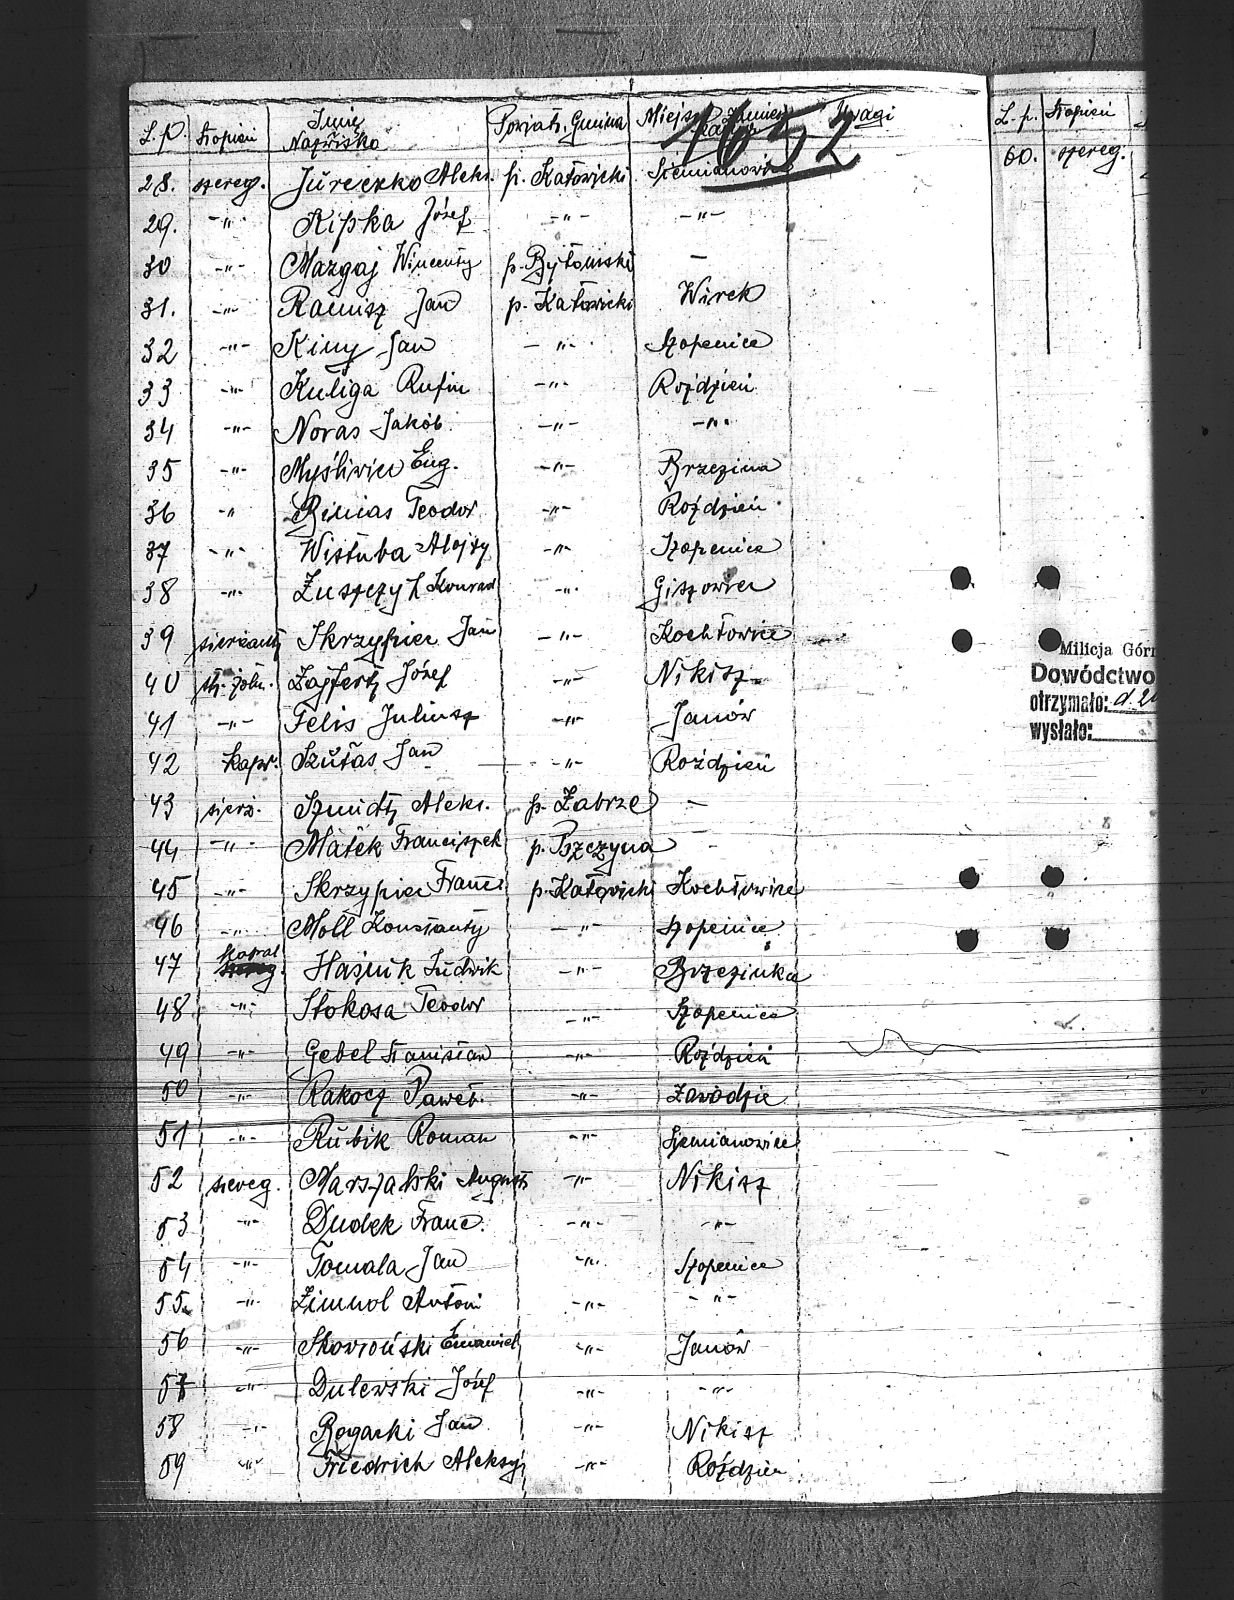 L.p. Stopień Imię Nazwisko Powiat. Gmina Miejsce zamieszkania Uwagi
1652
28. szereg. Jureczko Aleks. p. Katowicki Siemianowice
29. -"- Kipka Józef -"- -"-
30 -"- Mazgaj Wincenty p. Bytomski —
31. -"- Ramisz Jan p. Katowicki Wirek
32 -"- Kiny Jan -"- Szopenice
33 -"- Kuliga Rufin -"- Roździeń
34 -"- Noras Jakób -"- -"-
35 -"- Myśliwiec Eug. -"- Brzezina
36 -" Bimias Teodor -"- Roździeń
37 -"- Wistuba Alojzy -"- Szopenice
38 -"- Zuszczyk Konrad -"- Giszowiec
39 sierżant Skrzypiec Jan -"- Kochłowice
40 st. żołn. Zajfertz Józef -"- Nikisz
41 -"- Felis Juliusz -"- Janów
42 kapr. Szułas Jan -"- Roździeń
43 sierż. Szmidtz Aleks. p. Zabrze —
44 -"- Małek Franciszek p. Pszczyna -
45 -"- Skrzypiec Franc. p. Katowicki Kochłowice
46 -"- Moll Konstanty -"- Szopenice
47 kapral Haśnik Ludwik -"- Brzezinka
48 -"- Stokosa Teodor -"- Szopenice
49 -"- Gebel Stanisław -"- Roździeń
50 -"- Rakocz Paweł -"- Zawodzie
51 -"- Rubik Roman -"- Siemianowice
52 szereg. Marszalski August -"- Nikisz
53 -"- Dudek Franc. -"- -"-
54 -"- Tomala Jan -"- Szopenice
55 -"- Zimnol Antoni -"- -"-
56 -"- Skowroński Emanuel -"- Janów
57 -"- Dulewski Józef -"- -"-
58 -"- Bogacki Jan -"- Nikisz
59 -"- Friedrich Aleksy -"- Roździen
L.p. Stopień
60. szereg.
Milicja Górn
Dowództwo
otrzymało: d. 2
wysłało: